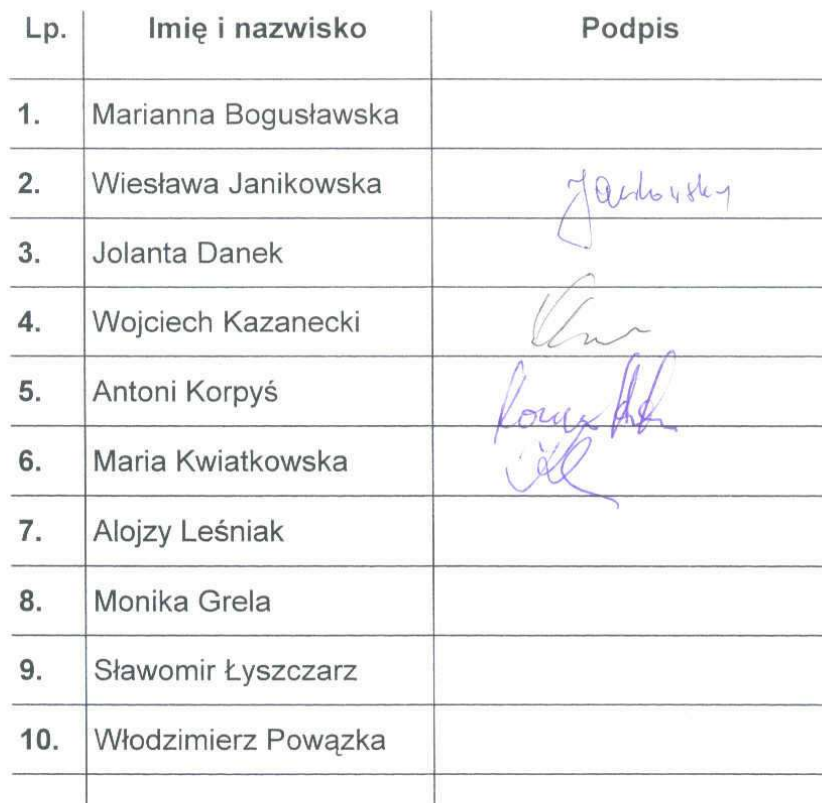 Lp. Imię i nazwisko Podpis
1. Marianna Bogusławska
2. Wiesława Janikowska
3. Jolanta Danek
4. Wojciech Kazanecki
5. Antoni Korpyś
6. Maria Kwiatkowska
7. Alojzy Leśniak
8. Monika Grela
9. Sławomir Łyszczarz
10. Włodzimierz Powązka